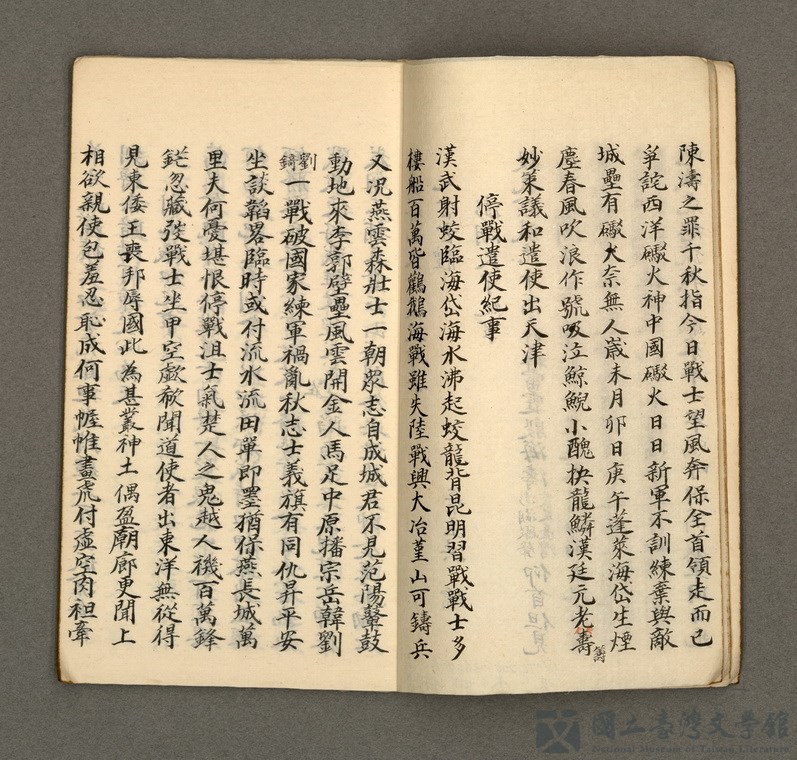 陳濤之罪千秋指今日戰士望風奔保全首領走而已
爭詫西洋礮火神中國礮火日日新軍不訓練棄與敵
城壘有礮火奈無人嵗未月卯日庚午蓬萊海岱生煙
塵春風吹浪作號吸泣鯨鯢小醜抉龍鱗漢廷元老壽籌
妙策議和遣使出天津
停戰遣使紀事
漢武射蛟臨海岱海水沸起蛟龍背昆明習戰戰士多
樓船百萬皆鸛鵝海戰雖失陸戰興大冶堇山可鑄兵
又況燕雲森壯士一朝眾志自成城君不見范陽鼙鼓
動地來李郭壁壘風雲開金人馬足中原播宗岳韓劉
劉錡一戰破國家練軍禍亂秋志士義旗有同仇昇平安
坐談韜畧臨時或付流水流田單即墨猶保燕長城萬
里夫何憂堪恨停戰沮士氣楚人之鬼越人禨百萬鋒
鋩忽藏弢戰士坐甲空歔欷聞道使者出東洋無從得
見東倭王喪邦辱國此為甚叢神土偶盈廟廊更聞上
相欲親使包羞忍恥成何事幄帷畫虎付虛空肉袒牽
國立臺灣文學館
National Museum of Taiwan Literature